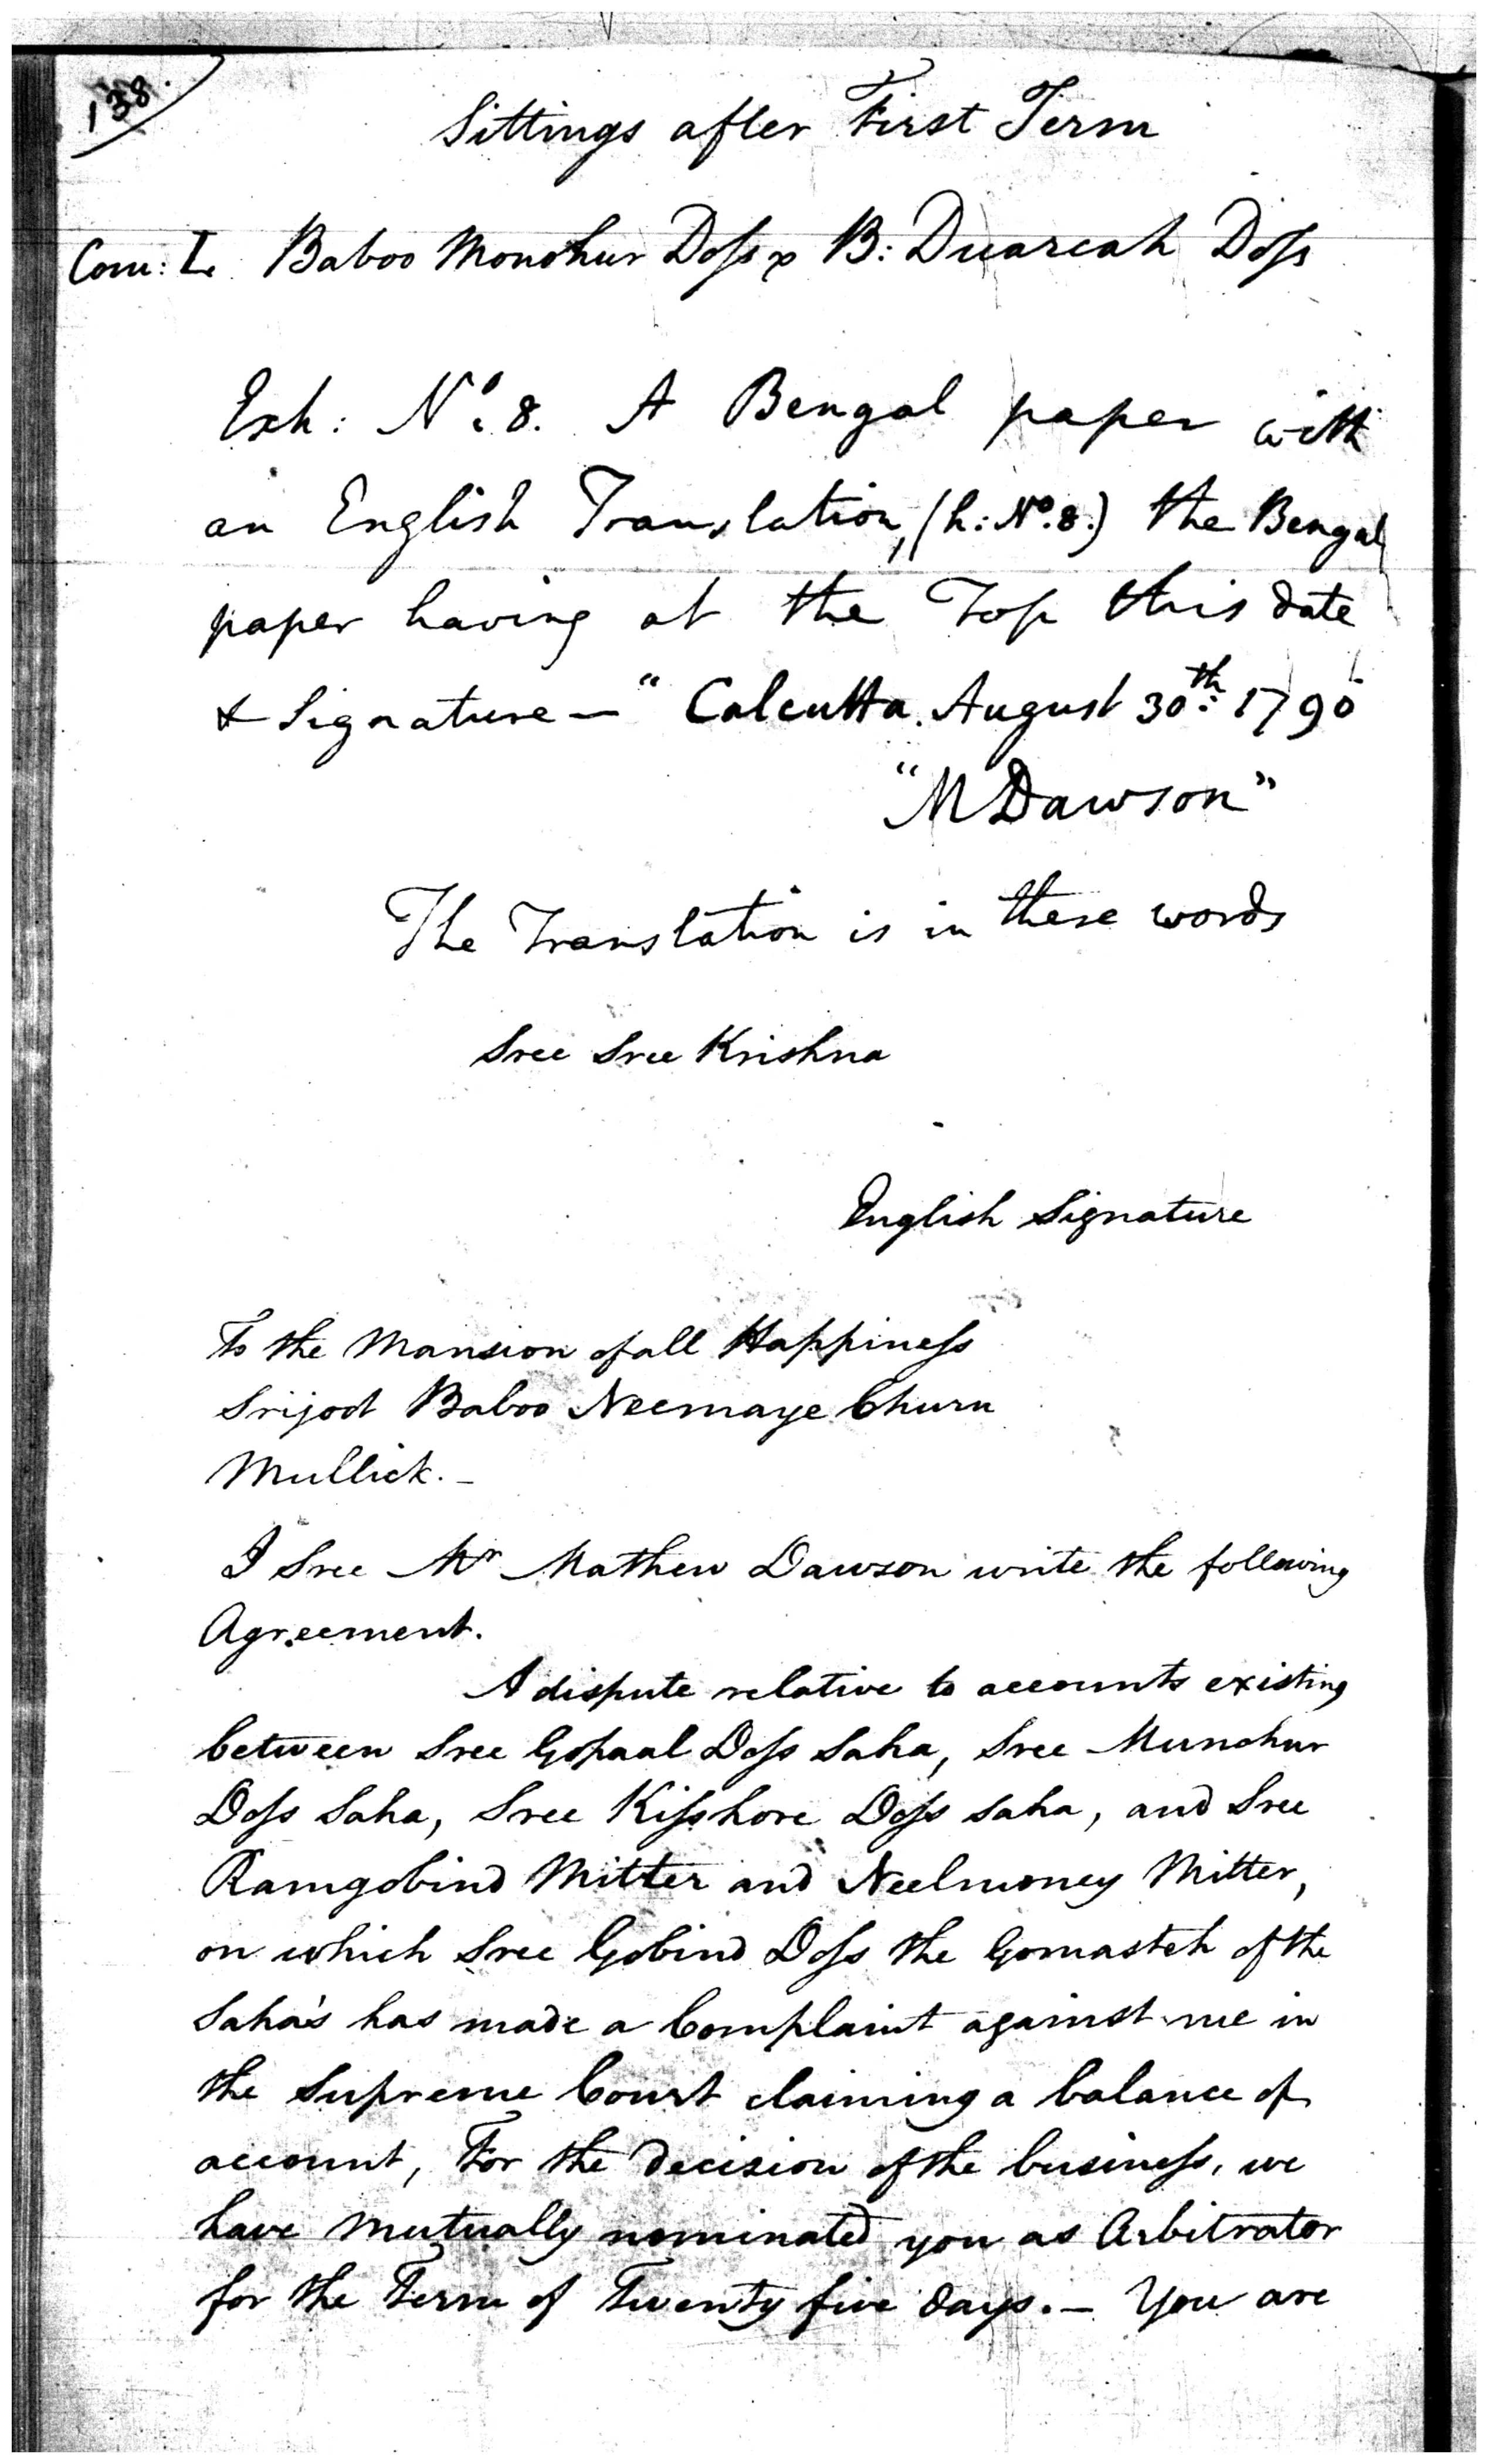 138.
Sittings after First Term
Com: L. Baboo Monohur Doſs v B: Duarcah Doſs
Exh: No. 8. A Bengal paper with
an English Translation, (h: No. 8.) the Bengal
paper having at the Top this date
& Signature — "Calcutta. August 30th: 1790
"M Dawson"
The Translation is in these words
Sree Sree Krishna
English Signature
To the Mansion of all Happineſs
Srijoot Baboo Neemaye Churn
Mullick. —
I Sree Mr Mathew Dawson write the following
Agreement.
A dispute relative to accounts existing
between Sree Gopaal Doſs Saha, Sree Munohur
Doſs Saha, Sree Kiſshore Doſs Saha, and Sree
Ramgobind Mitter and Neelmoney Mitter,
on which Sree Gobind Doſs the Gomasteh of the
Saha's has made a Complaint against me in
the Supreme Court claiming a balance of
account, For the Decision of the busineſs, we
have mutually nominated you as Arbitrator
for the Term of Twenty five days. — You are